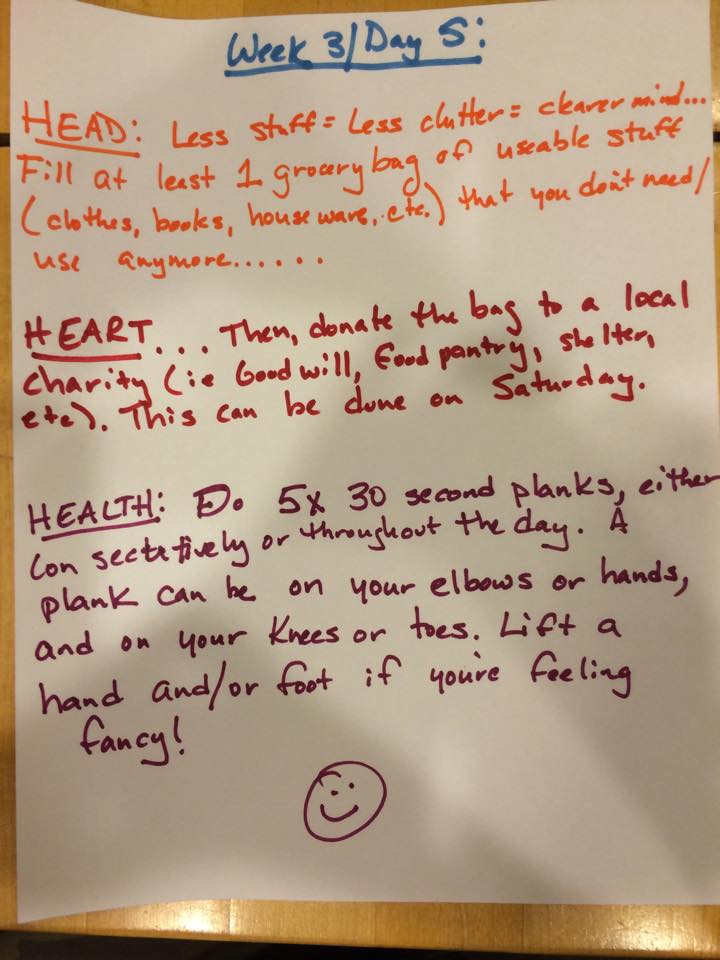 Week 3/Day 5:
HEAD: Less stuff = Less clutter = clearer mind...
Fill at least 1 grocery bag of useable stuff
(clothes, books, houseware, etc.) that you don't need/
use anymore......
HEART... Then, donate the bag to a local
charity (ie Goodwill, food pantry, shelter,
etc). This can be done on Saturday.
HEALTH: Do 5x 30 second planks, either
consectatively or throughout the day. A
plank can be on your elbows or hands,
and on your knees or toes. Lift a
hand and/or foot if you're feeling
fancy!